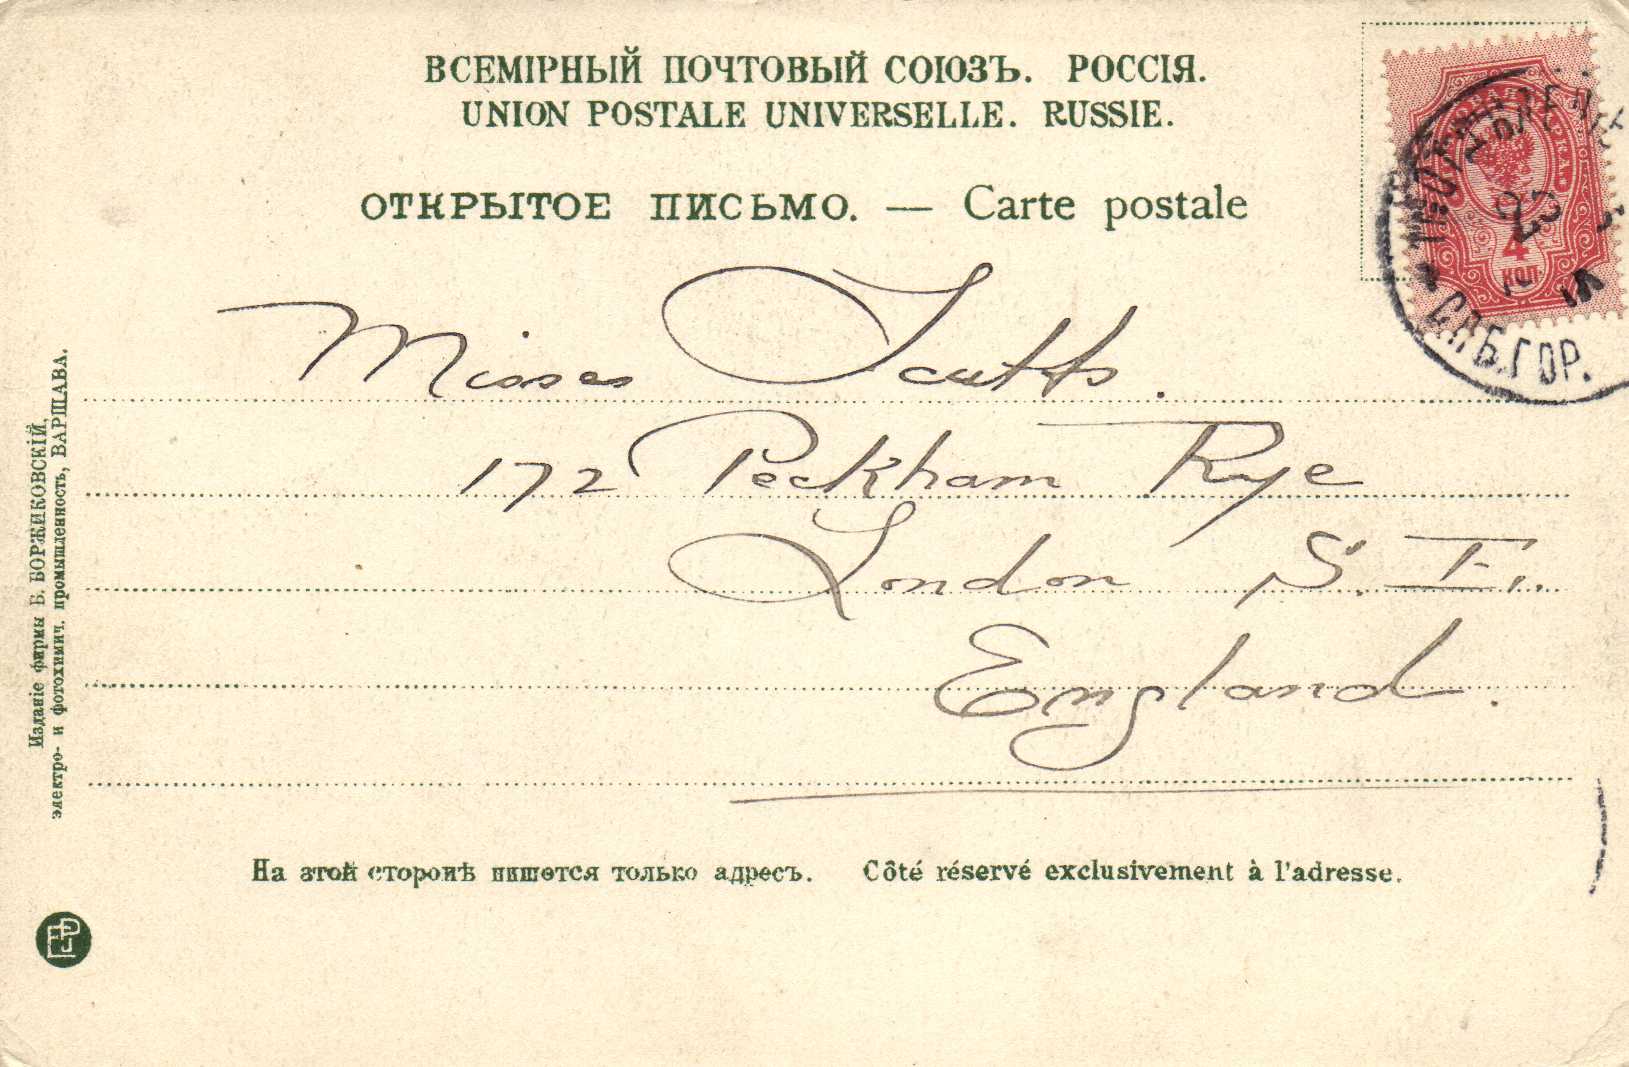 ВСЕМІРНЫЙ ПОЧТОВЫЙ СОЮЗЪ. РОССІЯ.
UNION POSTALE UNIVERSELLE. RUSSIE.
ОТКРЫТОЕ ПИСЬМО. — Carte postale
МАРКА
4
КОП.
С.П.Б. ГОР.
Misses Scutts.
172 Peckham Rye
London S.E.
England.
Изданіе фирмы Б. БОРЖИКОВСКІЙ,
электро- и фотохимич. промышленность, ВАРШАВА.
На этой сторонѣ пишется только адресъ. Côté réservé exclusivement à l'adresse.